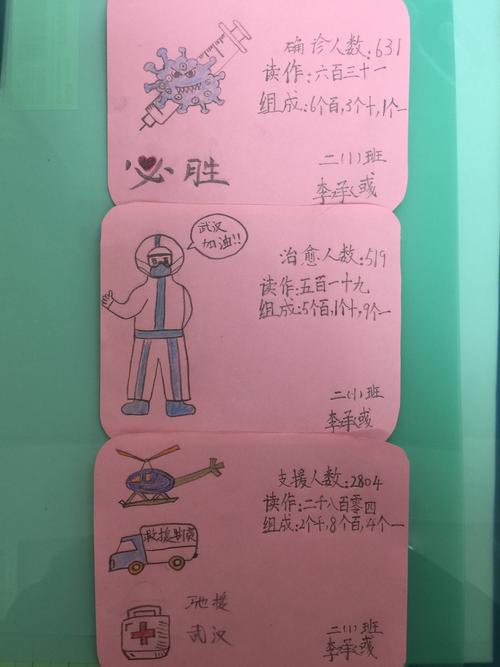 确诊人数:631
读作:六百三十一
组成:6个百,3个十,1个一
必胜
二(1)班
李承彧
武汉
加油!!
治愈人数:519
读作:五百一十九
组成:5个百,1个十,9个一
二(1)班
李承彧
支援人数:2804
读作:二千八百零四
组成:2个千,8个百,4个一
救援物资
驰援
武汉
二(1)班
李承彧